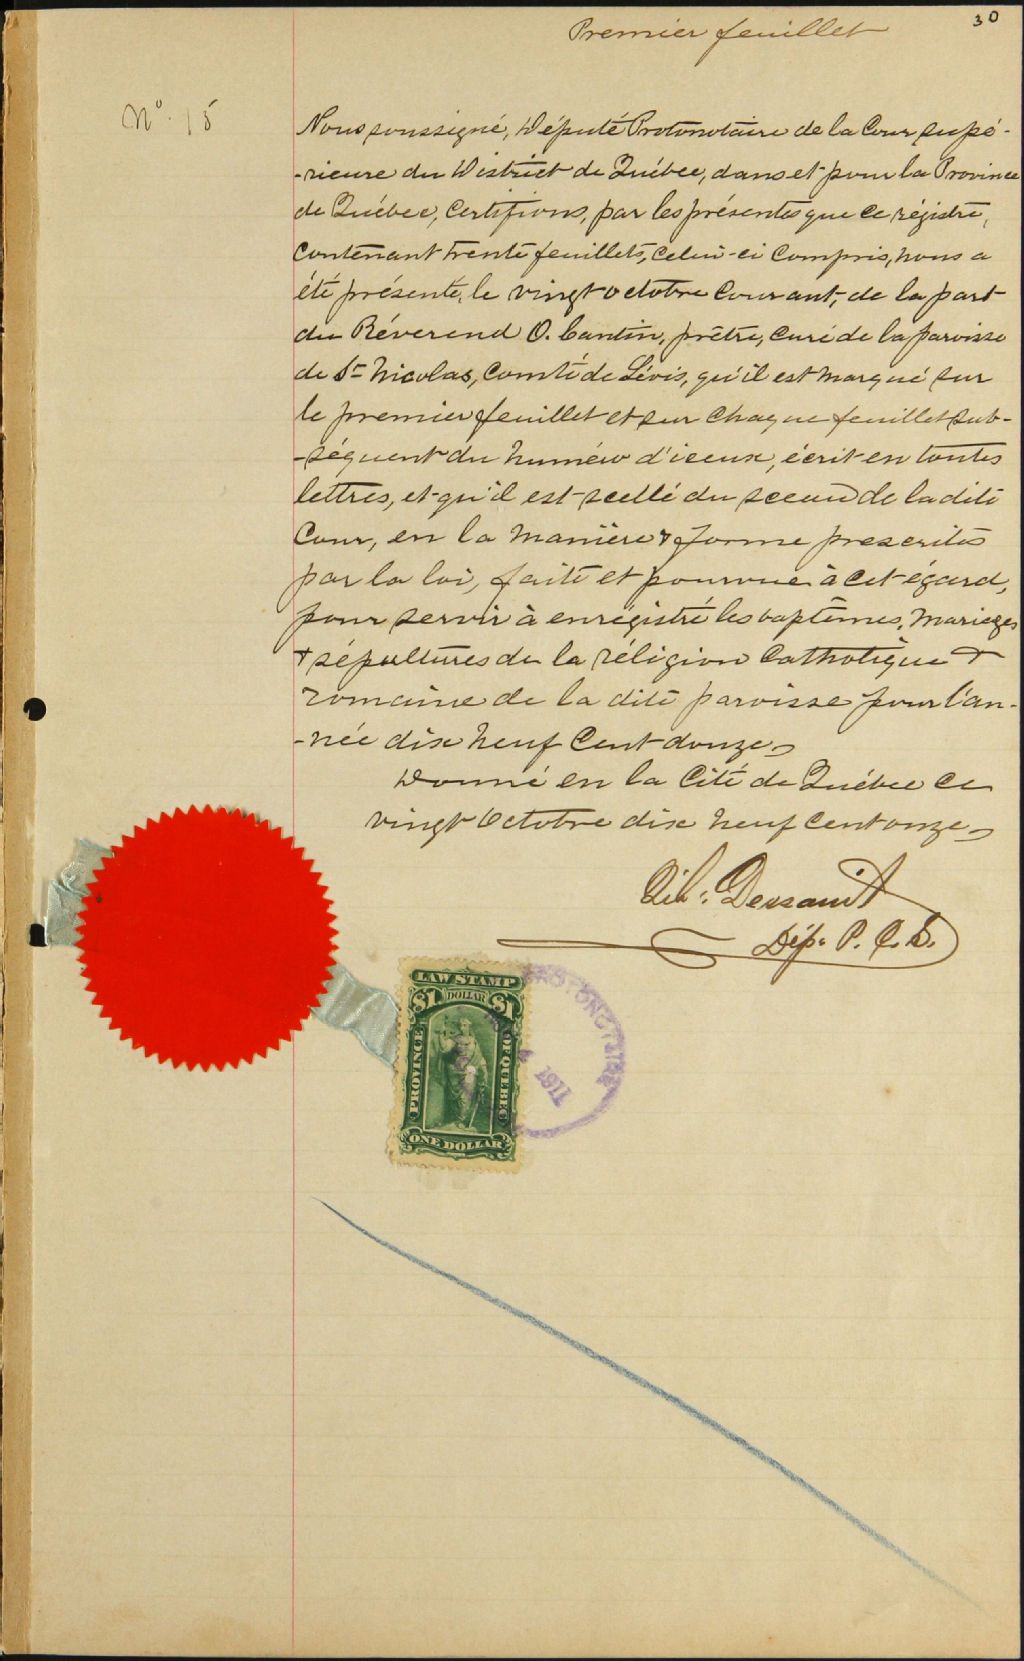 30
Premier feuillet
No. 15
Nous soussigné, Député Protonotaire de la Cour supé-
-rieure du District de Québec, dans et pour la Province
de Québec, Certifions, par les présentes que ce régistre,
contenant trente feuillets, celui-ci compris, nous a
été présenté, le vingt octobre courant, de la part
du Révérend O. Cantin, prêtre, curé de la paroisse
de St Nicolas, comté de Lévis, qu'il est marqué sur
le premier feuillet et sur chaque feuillet sub-
-séquent du numéro d'iceux, écrit en toutes
lettres, et qu'il est scellé du sceau de la dite
Cour, en la manière & forme prescrites
par la loi, faite et pourvue à cet égard,
pour servir à enrégistré les baptêmes, mariages
& sépultures de la réligion Catholique &
romaine de la dite paroisse pour l'an-
-née dix neuf cent douze
Donné en la Cité de Québec ce
vingt Octobre dix neuf cent onze
Dessault
Dép. P. C. S.
LAW STAMP
$1 DOLLAR $1
PROVINCE OF QUEBEC
ONE DOLLAR
PROTONOTAIRE
1911